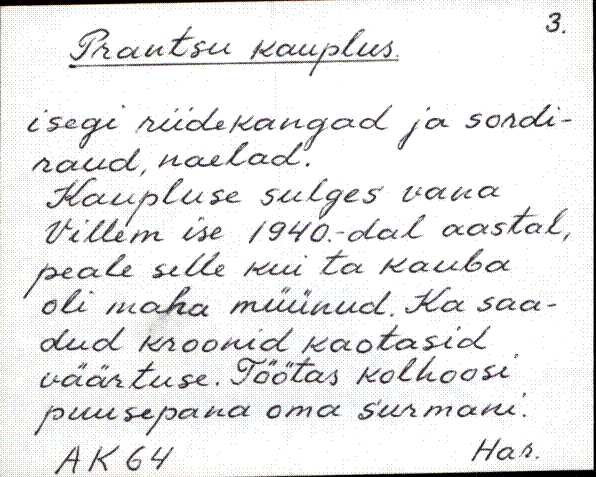 3.
Prantsu kauplus.
isegi riidekangad ja sordi-
raud, naelad.
Kaupluse sulges vana
Villem ise 1940.-dal aastal,
peale selle kui ta kauba
oli maha müünud. Ka saa-
dud kroonid kaotasid
väärtuse. Töötas kolhoosi
puusepana oma surmani.
AK 64 Har.